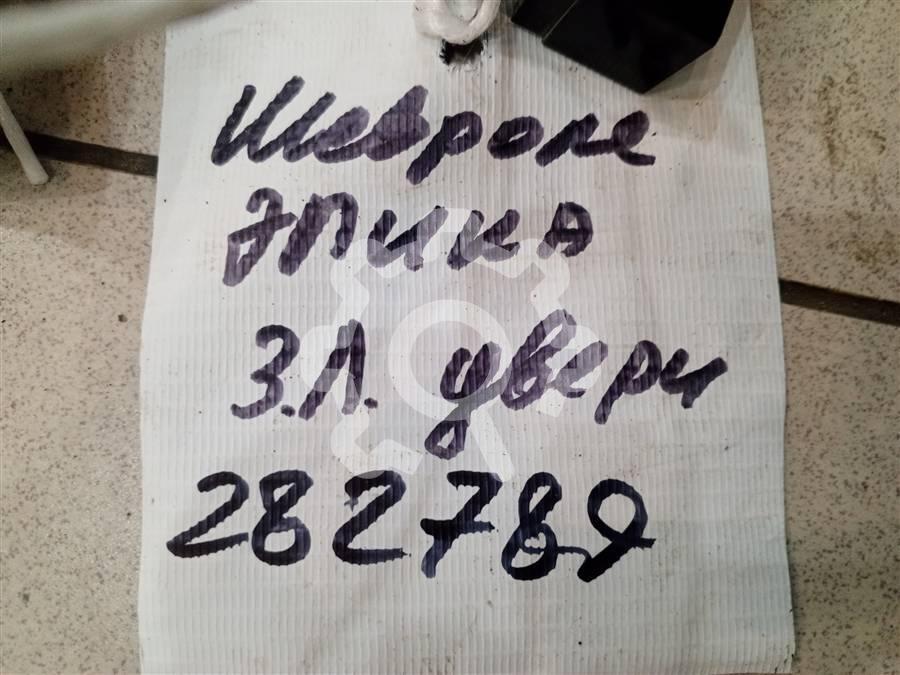 Шевроле
Эпика
З.Л. двери
282789